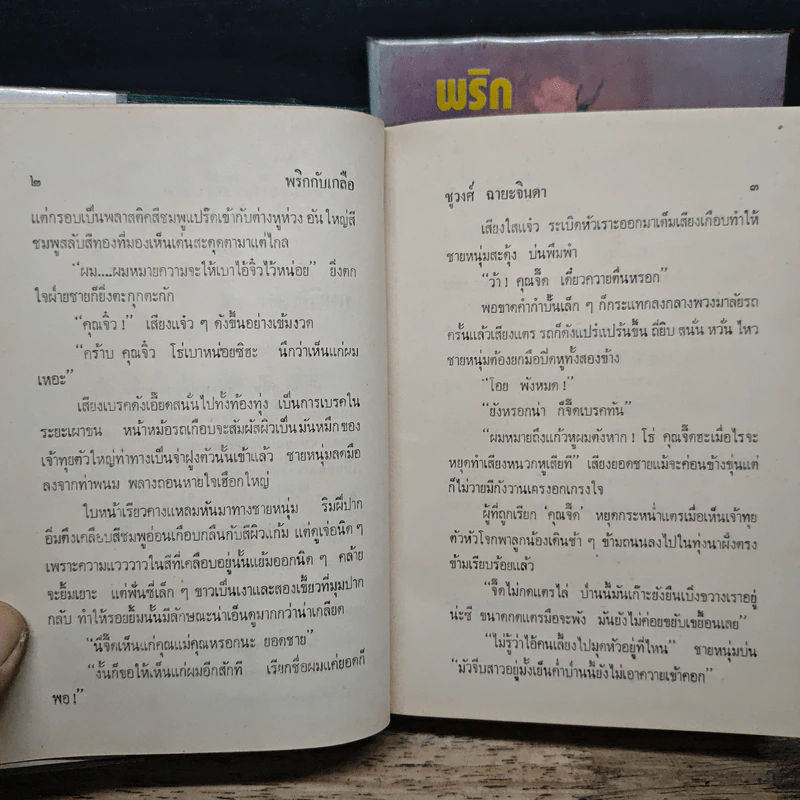 พริก
๒ พริกกับเกลือ
แต่กรอบเป็นพลาสติคสีชมพูแปร๊ดเข้ากับต่างหูห่วง อันใหญ่สี
ชมพูสลับสีทองที่มองเห็นเด่นสะดุดตามาแต่ไกล
“ผม....ผมหมายความจะให้เบาไอ้จิ๋วไว้หน่อย” ยิ่งตก
ใจฝ่ายชายก็ยิ่งตะกุกตะกัก
“คุณจิ๋ว!” เสียงแจ๋ว ๆ ดังขึ้นอย่างเข้มงวด
“คร้าบ คุณจิ๋ว โธ่เบาหน่อยซิฮะ นึกว่าเห็นแก่ผม
เหอะ”
เสียงเบรคดังเอี๊ยดสนั่นไปทั้งท้องทุ่ง เป็นการเบรคใน
ระยะเผาขน หน้าหม้อรถเกือบจะสัมผัสผิวเป็นมันหมึกของ
เจ้าทุยตัวใหญ่ท่าทางเป็นจ่าฝูงตัวนั้นเข้าแล้ว ชายหนุ่มลดมือ
ลงจากท่าพนม พลางถอนหายใจเฮือกใหญ่
ใบหน้าเรียวคางแหลมหันมาทางชายหนุ่ม ริมฝีปาก
อิ่มตึงเคลือบสีชมพูอ่อนเกือบกลืนกับสีผิวแก้ม แต่ดูเจ่อนิด ๆ
เพราะความแวววาวในสีที่เคลือบอยู่นั้นแย้มออกนิด ๆ คล้าย
จะยิ้มเยาะ แต่ฟันซี่เล็ก ๆ ขาวเป็นเงาและสองเขี้ยวที่มุมปาก
กลับ ทำให้รอยยิ้มนั้นมีลักษณะน่าเอ็นดูมากกว่าน่าเกลียด
“นี่จี๊ดเห็นแก่คุณแม่คุณหรอกนะ ยอดชาย”
“งั้นก็ขอให้เห็นแก่ผมอีกสักที เรียกชื่อผมแค่ยอดก็
พอ!”
ชูวงศ์ ฉายะจินดา ๓
เสียงใสแจ๋ว ระเบิดหัวเราะออกมาเต็มเสียงเกือบทำให้
ชายหนุ่มสะดุ้ง บ่นพึมพำ
“ว้า! คุณจี๊ด เดี๋ยวควายตื่นหรอก”
พอขาดคำกำปั้นเล็ก ๆ ก็กระแทกลงกลางพวงมาลัยรถ
ครั้นแล้วเสียงแตร รถก็ดังแปร๋แปร้นขึ้น ถี่ยิบ สนั่น หวั่น ไหว
ชายหนุ่มต้องยกมือปิดหูทั้งสองข้าง
“โอย พังหมด!”
“ยังหรอกน่า ก็จี๊ดเบรคทัน”
“ผมหมายถึงแก้วหูผมตังหาก! โธ่ คุณจี๊ดฮะเมื่อไรจะ
หยุดทำเสียงหนวกหูเสียที” เสียงยอดชายแม้จะค่อนข้างขุ่นแต่
ก็ไม่วายมีกังวานเครงอกเกรงใจ
ผู้ที่ถูกเรียก ‘คุณจี๊ด’ หยุดกระหน่ำแตรเมื่อเห็นเจ้าทุย
ตัวหัวโจกพาลูกน้องเดินช้า ๆ ข้ามถนนลงไปในทุ่งนาฝั่งตรง
ข้ามเรียบร้อยแล้ว
“จี๊ดไม่กดแตรไล่ ป่านนี้มันเก๊าะยังยืนเบิ่งขวางเราอยู่
น่ะซี ขนาดกดแตรมือจะพัง มันยังไม่ค่อยขยับเขยื้อนเลย”
“ไม่รู้ว่าไอ้คนเลี้ยงไปมุดหัวอยู่ที่ไหน” ชายหนุ่มบ่น
“มัวจีบสาวอยู่มั้งเย็นค่ำป่านนี้ยังไม่เอาควายเข้าคอก”